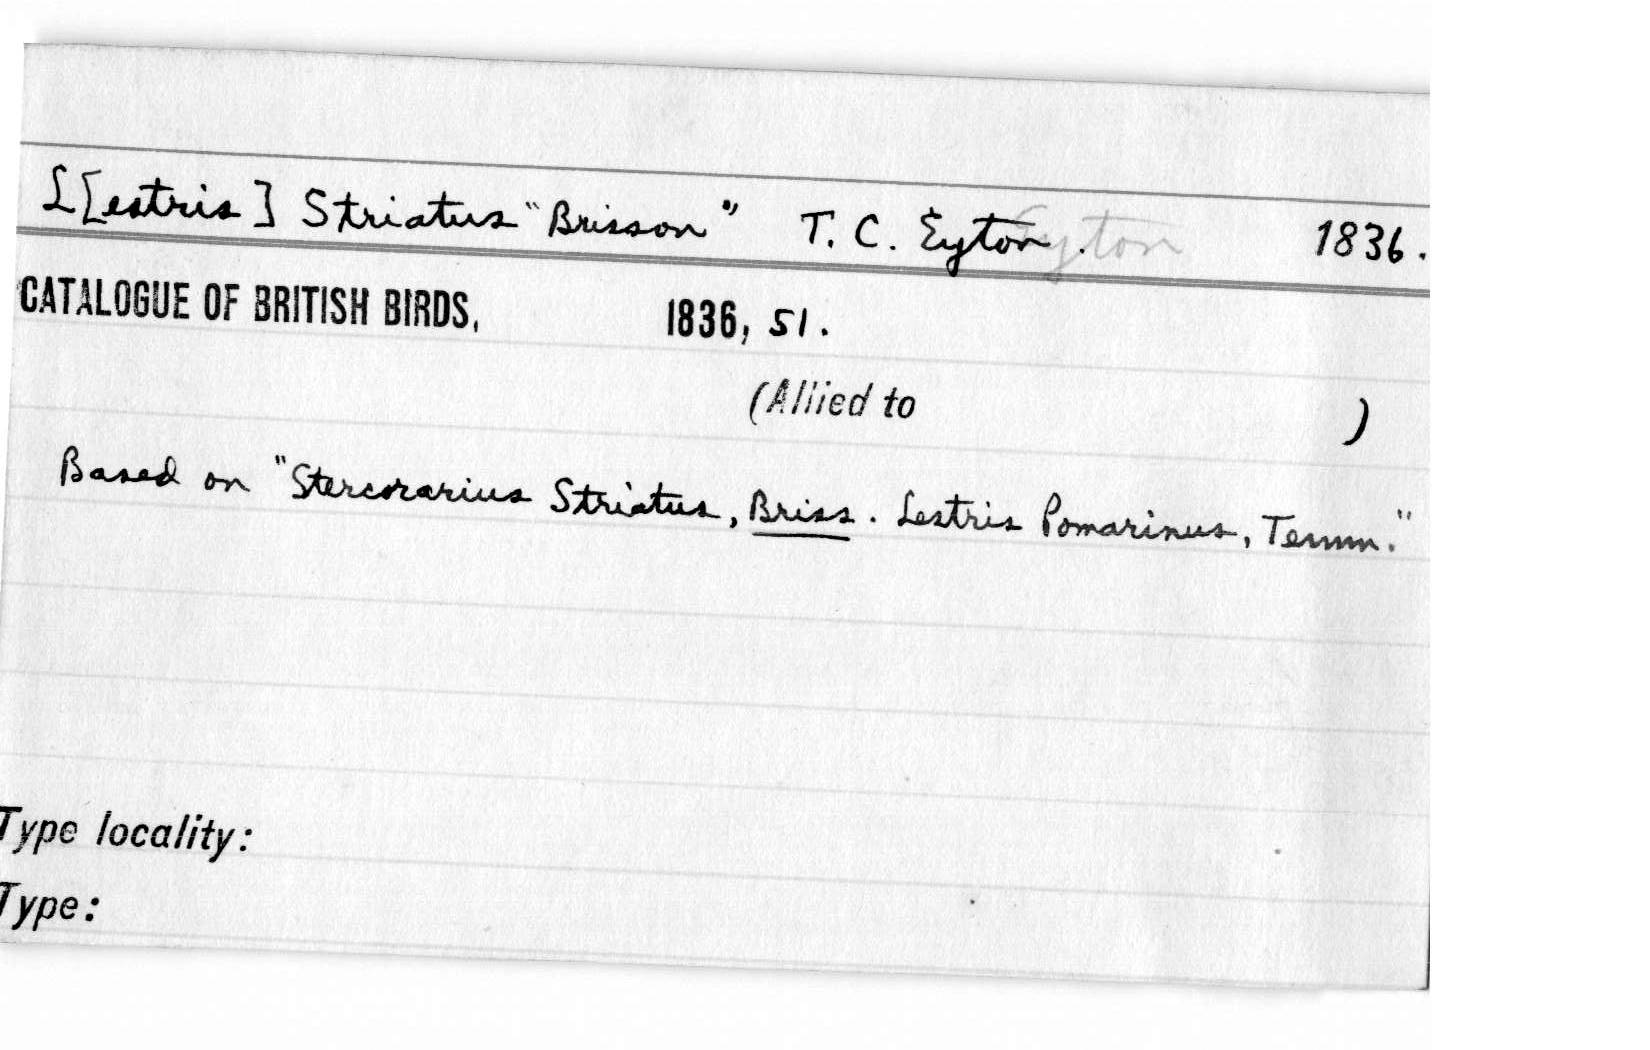 L[estris] Striatus "Brisson" T. C. Eyton. Eyton 1836.
CATALOGUE OF BRITISH BIRDS, 1836, 51.
(Allied to )
Based on "Stercorarius Striatus, Briss. Lestris Pomarinus, Temm."
Type locality:
Type: